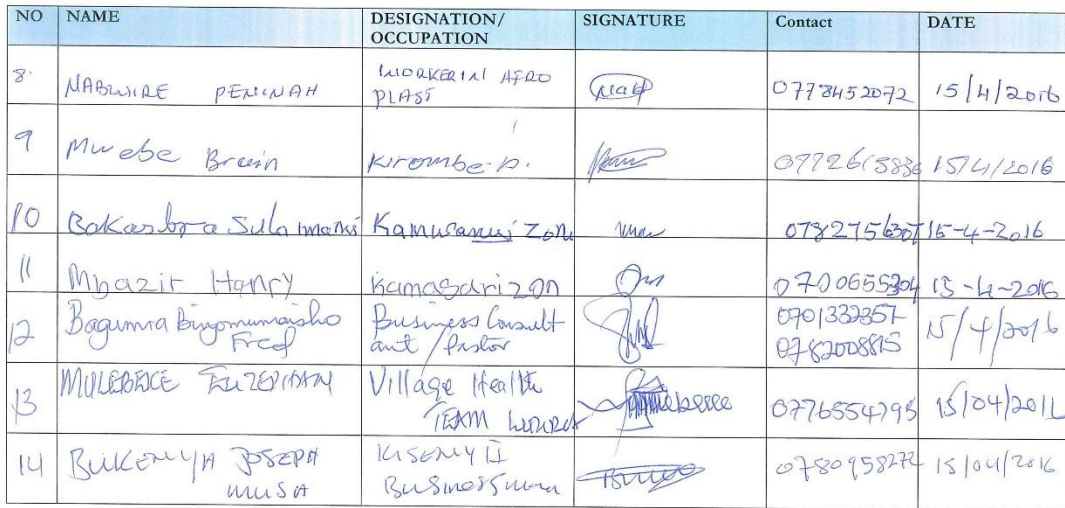 NO NAME DESIGNATION/ OCCUPATION SIGNATURE Contact DATE
8. NABWIRE PENINAH WORKER IN AFRO PLAST 0778452072 15/4/2016
9 Mwebe Brain Kirombe-A. 0772615836 15/4/2016
10 Sulaimani Zone 0782756307 15-4-2016
11 Mbazir Hanry Kamasarizon 0700655304 15-4-2016
12 Fred Business Consult ant / Pastor 0701332357 0782008815 15/4/2016
13 MULEBEKE Village Health TEAM 0776554795 15/04/2016
14 BUKENYA JOSEPH MUSA KISENYI II Businessman 0780958272 15/04/2016